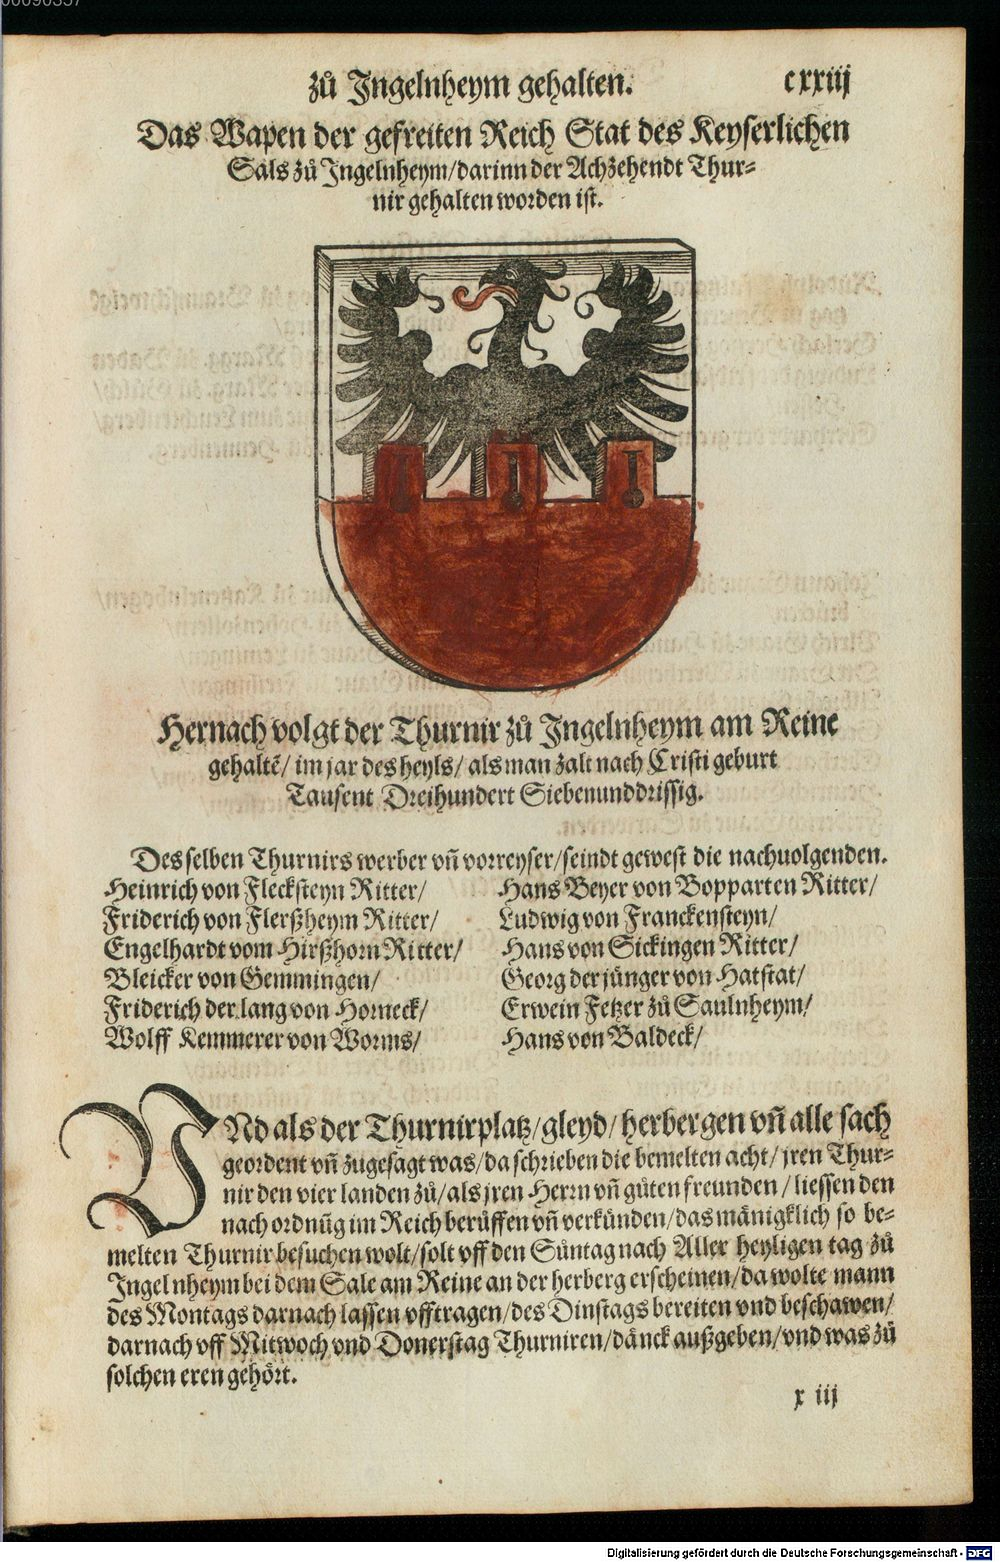 zů Jngelnheym gehalten. cxxiij
Das Wapen der gefreiten Reich Stat des Keyserlichen
Sals zů Jngelnheym/darinn der Achzehendt Thur-
nir gehalten worden ist.
Hernach volgt der Thurnir zů Jngelnheym am Reine
gehaltē/ im jar des heyls/ als man zalt nach Cristi geburt
Tausent Dreihundert Siebenunddrissig.
Desselben Thurnirs werber vn̄ vorreyser/seindt gewest die nachuolgenden.
Heinrich von Flecksteyn Ritter/
Friderich von Flerßheym Ritter/
Engelhardt vom Hirßhorn Ritter/
Bleicker von Gemmingen/
Friderich der lang von Horneck/
Wolff Kemmerer von Worms/
Hans Beyer von Bopparten Ritter/
Ludwig von Franckensteyn/
Hans von Sickingen Ritter/
Georg der jünger von Hatstat/
Erwein Fetzer zů Saulnheym/
Hans von Baldeck/
VNd als der Thurnirplatz/gleyd/herbergen vn̄ alle sach
geordent vn̄ zugesagt was/da schrieben die bemelten acht/jren Thur-
nir den vier landen zů/als jren Herrn vn̄ gůten freunden/liessen den
nach ordnūg im Reich berůffen vn̄ verkünden/das mänigklich so be-
melten Thurnir besuchen wolt/solt vff den Sůntag nach Aller heyligen tag zů
Jngelnheym bei dem Sale am Reine an der herberg erscheinen/da wolte mann
des Montags darnach lassen vfftragen/des Dinstags bereiten vnd beschawen/
darnach vff Mitwoch vnd Donerstag Thurniren/dänck außgeben/vnd was zů
solchen eren gehört.
x iij
Digitalisierung gefördert durch die Deutsche Forschungsgemeinschaft - DFG